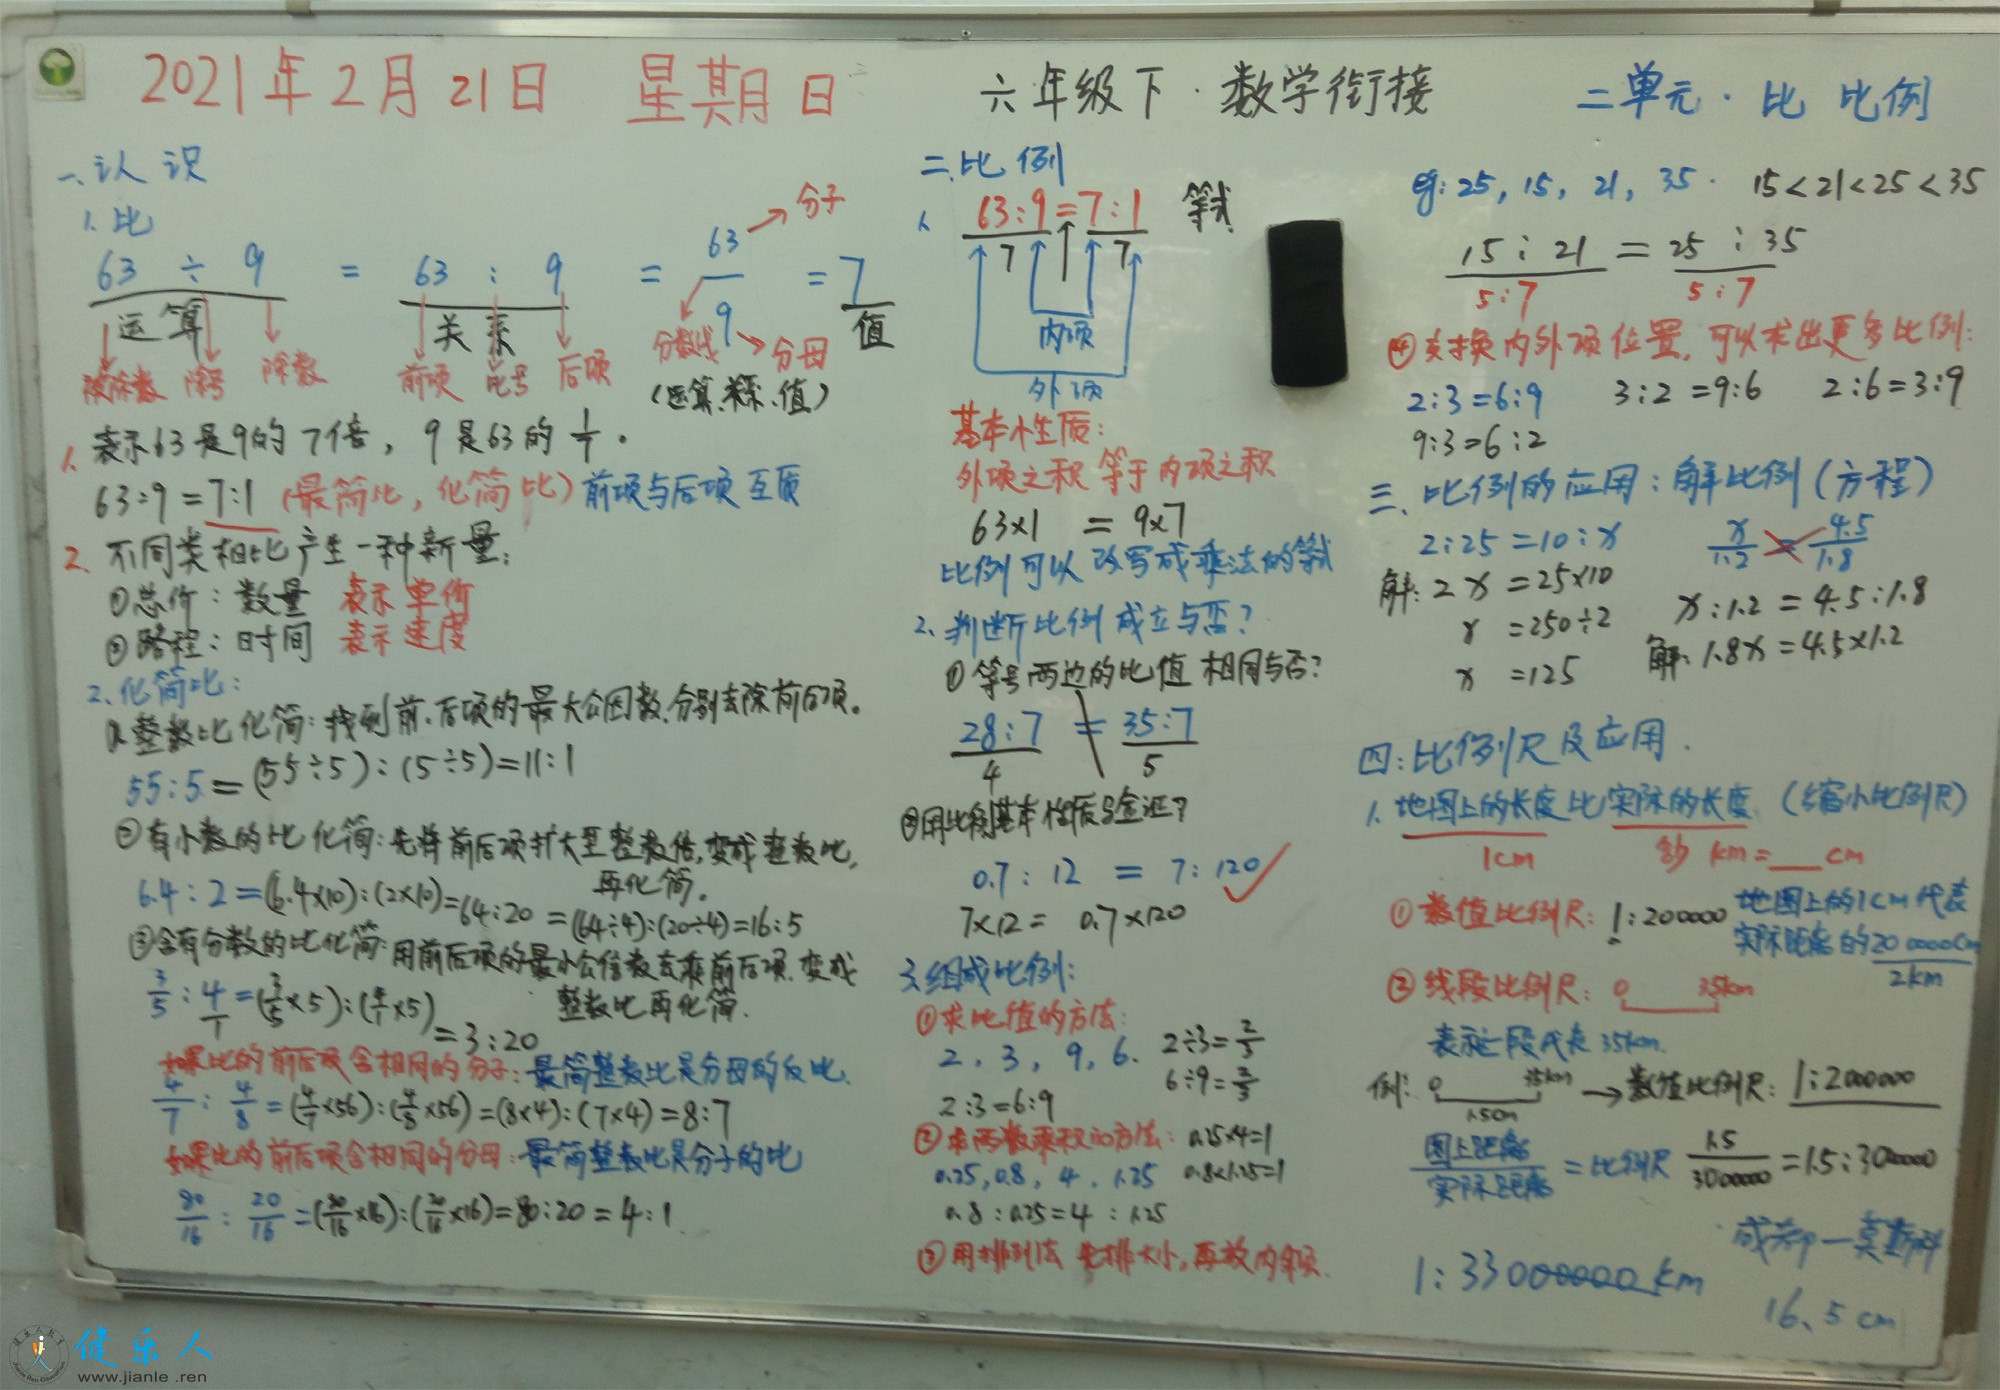 2021年2月21日 星期日 六年级下·数学衔接 二单元·比 比例
一、认识
1.比
63 ÷ 9 = 63 : 9 = 63/9 = 7
分子
运算 关系 值
被除数 除号 除数 前项 比号 后项 分数线 分母
(运算、关系、值)
1. 表示63是9的7倍, 9是63的1/7.
63:9=7:1 (最简比, 化简比) 前项与后项互质
2. 不同类相比产生一种新量:
①总价: 数量 表示单价
②路程: 时间 表示速度
2.化简比:
①.整数比化简: 找到前、后项的最大公因数,分别去除前后项。
55:5=(55÷5):(5÷5)=11:1
②有小数的比化简: 先将前后项扩大至整数倍,变成整数比,
再化简.
6.4:2=(6.4×10):(2×10)=64:20=(64÷4):(20÷4)=16:5
③含有分数的比化简: 用前后项的最小公倍数去乘前后项.变成
整数比再化简.
3/5:4/1=(3/5×5):(4/1×5)=3:20
如果比的前后项含相同的分子: 最简整数比是分母的反比.
4/7:4/8=(4/7×56):(4/8×56)=(8×4):(7×4)=8:7
如果比的前后项含相同的分母: 最简整数比是分子的比
80/16:20/16=(80/16×16):(20/16×16)=80:20=4:1
二.比例
1. 63:9=7:1 等式
7 7
内项
外项
基本性质:
外项之积等于内项之积
63×1 = 9×7
比例可以改写成乘法的等式
2.判断比例成立与否?
①等号两边的比值相同与否?
28:7 = 35:7
4 5
②用比例基本性质验证?
0.7:12 = 7:120
7×12= 0.7×120
3.组成比例:
①求比值的方法:
2, 3, 9, 6. 2÷3=2/3
6÷9=2/3
2:3=6:9
②求两数乘积的方法: 0.25×4=1
0.25, 0.8, 4, 1.25 0.8×1.25=1
0.8:0.25=4:1.25
③用排列法 先排大小,再放内外项.
eg: 25, 15, 21, 35. 15<21<25<35
15:21=25:35
5:7 5:7
④交换内外项位置,可以求出更多比例:
2:3=6:9 3:2=9:6 2:6=3:9
9:3=6:2
三、比例的应用: 解比例(方程)
2:25=10:x x/1.2=4.5/1.8
解: 2x=25×10 x:1.2=4.5:1.8
x=250÷2 解: 1.8x=4.5×1.2
x=125
四: 比例尺及应用.
1.地图上的长度比实际的长度. (缩小比例尺)
1cm 多少 km=__cm
①数值比例尺: 1:200000 地图上的1cm代表
实际距离的200000cm
2km
②线段比例尺: 0 35km
表示一段代表35km.
例: 0 35km → 数值比例尺: 1:2000000
1.5cm
图上距离/实际距离 = 比例尺 1.5/3000000=1.5:3000000
成都一莫斯科
1:330000000 km
16.5cm
健乐人
www.jianle .ren